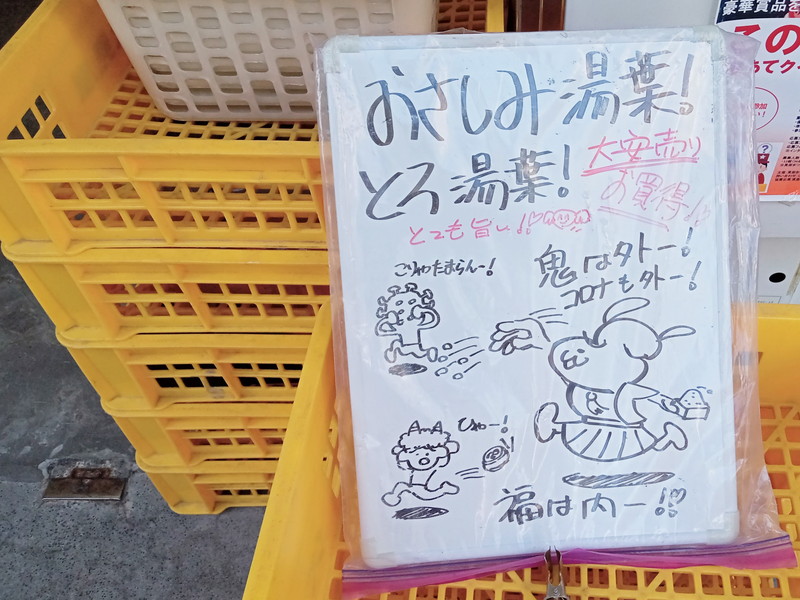 おさしみ湯葉!
とろ湯葉!
大安売り
お買得!!
とても旨い!!
鬼は外ー!
コロナも外ー!
ごりゃたまらんー!
ひゃー!
福は内ー!!
豪華賞品を
この